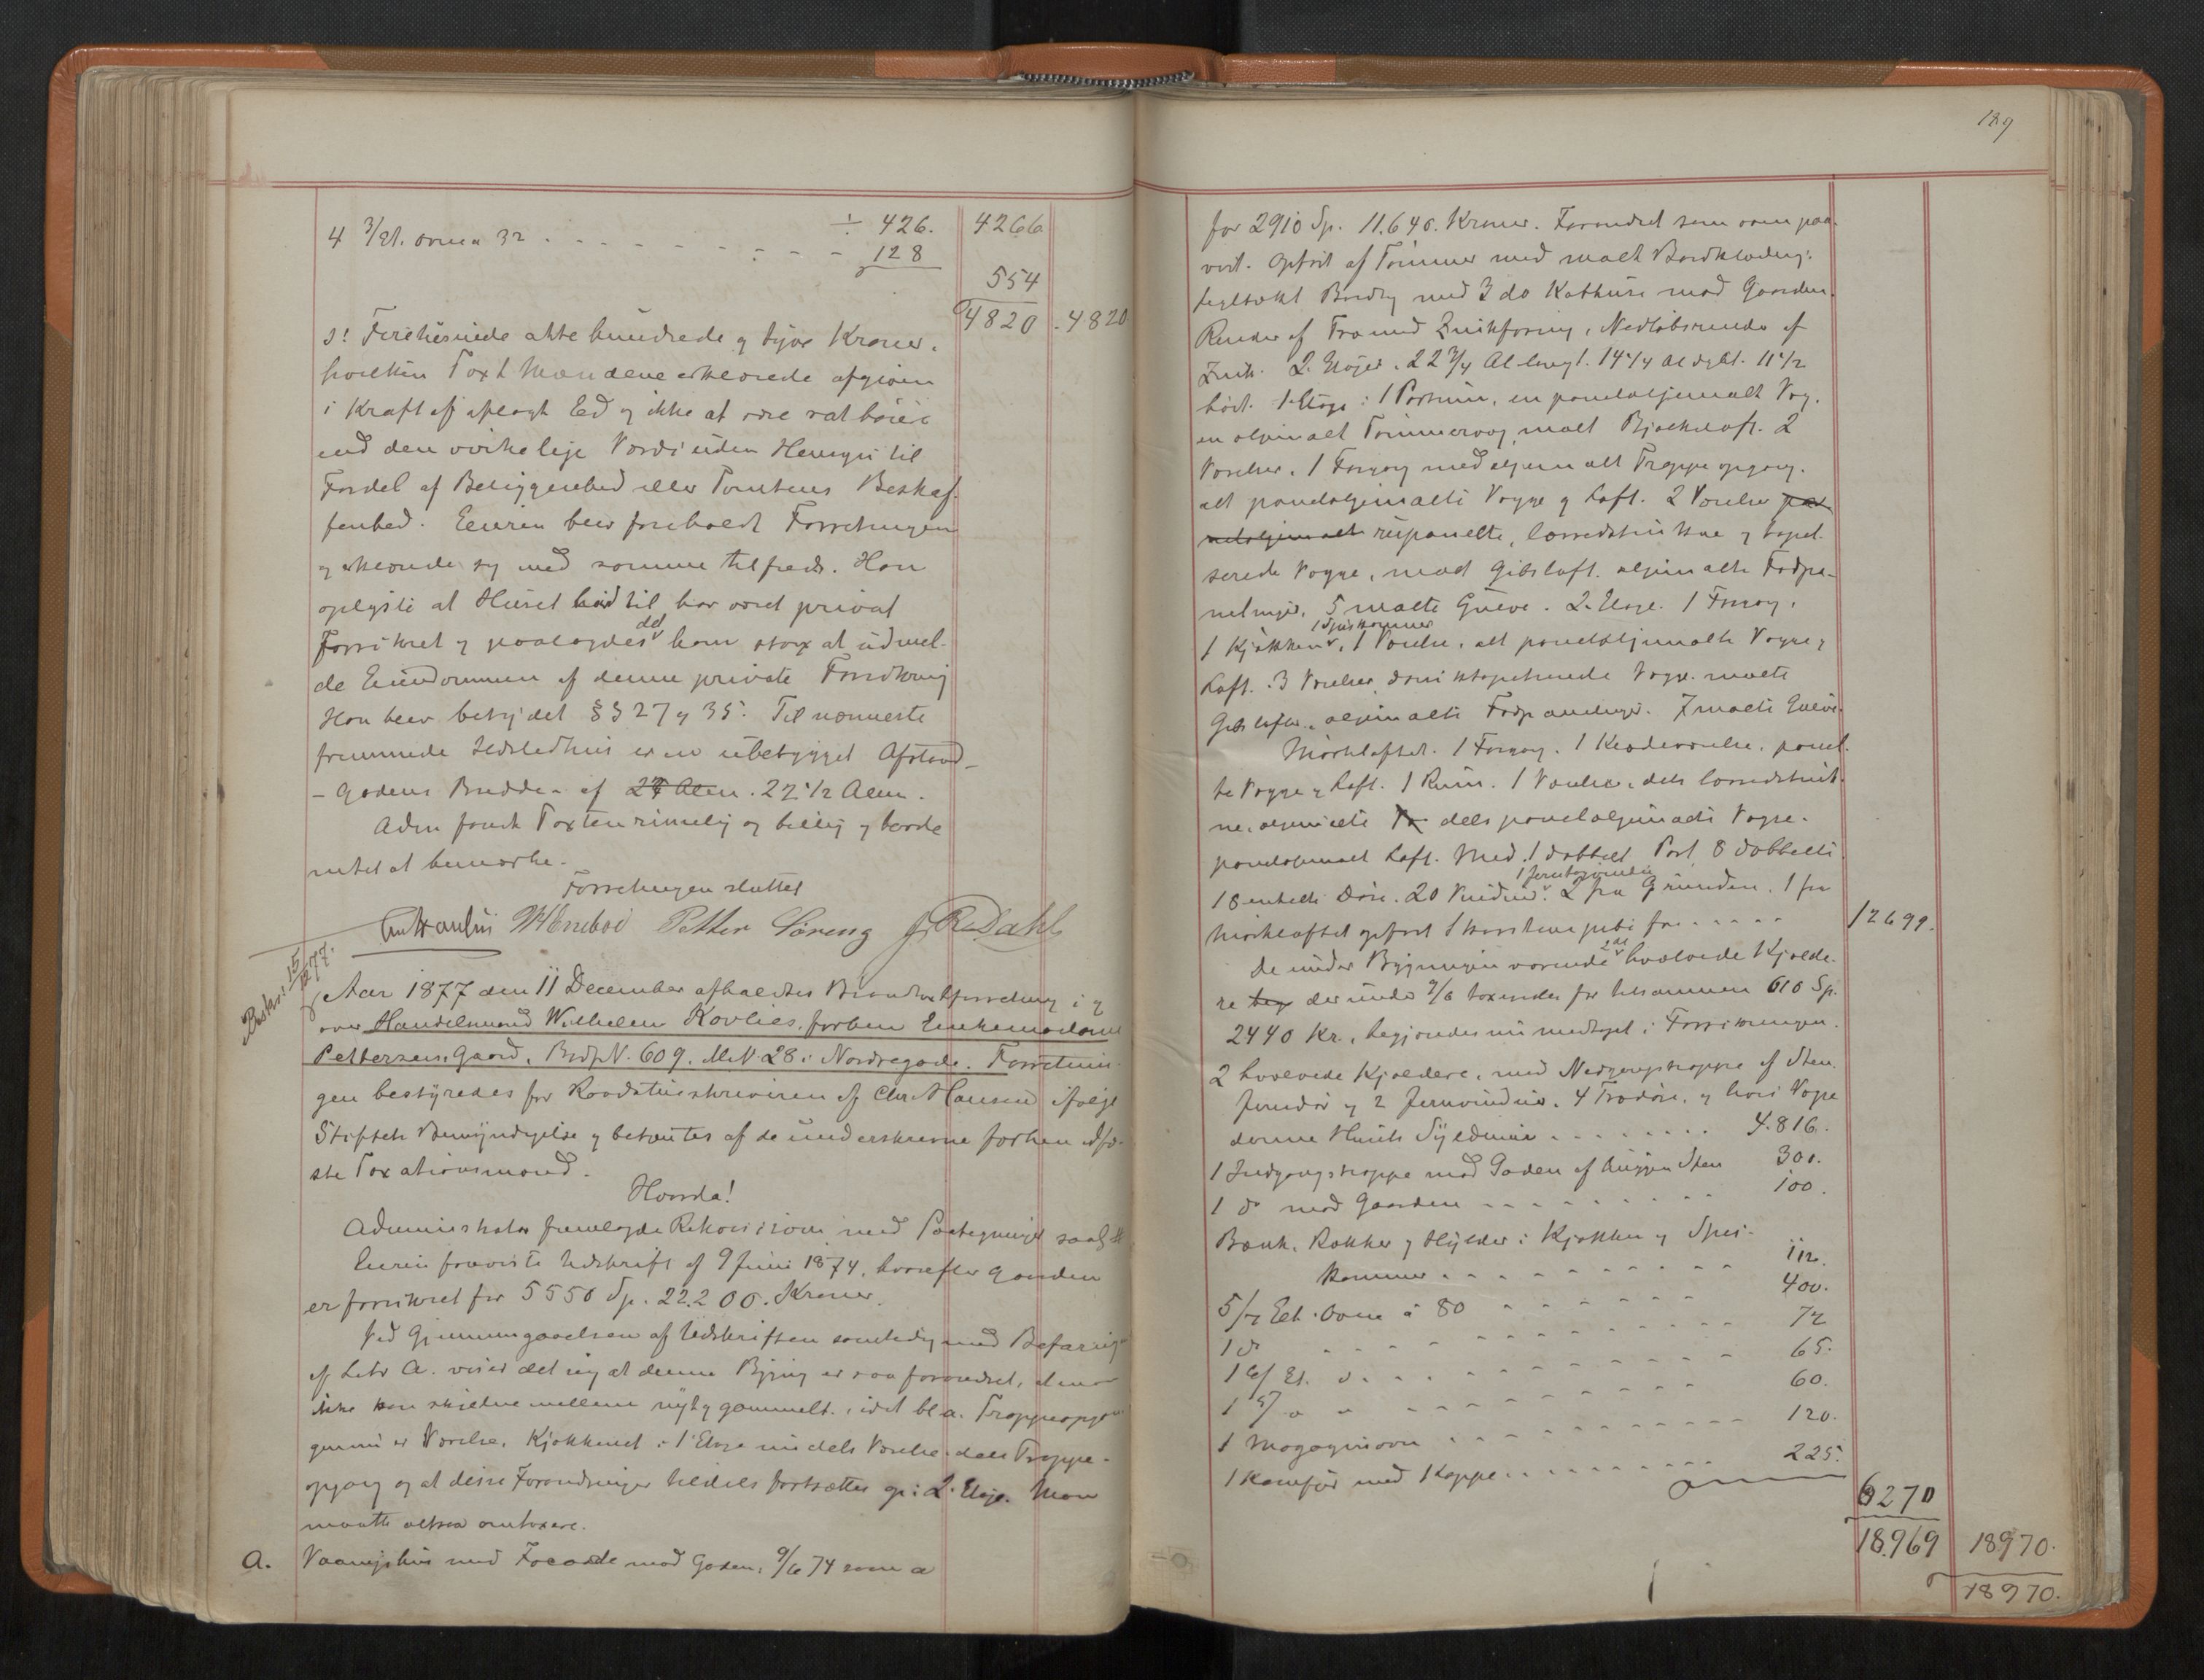 4 3/Et. ovne a 32 . . . . . . . . ÷ 426. 4266
128
554
4820 . 4820
s! Firetusinde otte hundrede og tyve Kroner,
hvilken Taxt Mændene erklærede afgiven
i Kraft af aflagt Ed og ikke at være sat høiere
end den virkelige Værdi uden Hensyn til
Fordel af Beliggenhed eller Tomtens Beskaf-
fenhed. Eieren blev foreholdt Forretningen
og erklærede sig med samme tilfreds. Han
oplyste at Huset hidtil har været privat
Forsikret og paalagdes det ham strax at udmel-
de Eiendommen af denne private Forsikring
Han blev betydet §§ 27 og 35. Til nærmeste
fremmede Ildstedhus er en ubebygget Afstand
- Gadens Bredde - af 24 Alen . 22 1/2 Alen.
Adm fandt Taxten rimelig og billig og havde
intet at bemærke.
Forretningen sluttet
Petter Søreng J. R. Dahl
Beskr. 15/12 77.
Aar 1877 den 11 December afholdtes Brandtaxtforretning i og
over Handelsmand Wilhelm Kovlies, forhen Enkemadame
Pettersens Gaard, BrdfN. 609. MtN. 28 i Nordregade. Forretnin-
gen bestyredes for Raadstueskriveren af Chr. Hansen ifølge
Stiftets Bemyndigelse og betjentes af de underskrevne forhen edfæ-
ste Taxationsmænd.
Hørda!
Administrator fremlagde Rekvisition med Paategninger saal.
Eieren foreviste Udskrift af 9 Juni 1874, hvorefter Gaarden
er forsikret for 5550 Sp. 22.200. Kroner.
Ved Gjennemgaaelsen af Udskriften samtidig med Befaring
af Litr A. viser det sig at denne Bygning er saa forandret, at man
ikke kan skjelne mellem nyt og gammelt, idet bl. a. Trappeopgan-
gen nu er Værelse, Kjøkkenet i 1 Etage nu dels Værelse dels Trappe-
opgang og at disse Forandringer tildels fortsættes op i 2. Etage. Man
maatte altsaa omtaxere.
A. Vaaningshus med Facade mod Gaden, 9/6 74 som a
189
for 2910 Sp. 11.640. Kroner. Forandret som oven paa-
vist. Opført af Tømmer med malt Bordklædning,
tegltækt Bordtag med 3 do Kathuse mod Gaarden.
Render af Træ med Zinkforing, Nedløbsrender af
Zink. 2 Etager. 22 3/4 Al langt. 14 1/4 Al dybt. 11 1/2
høit. 1 Etage: 1 Portrum, en paneloljemalt Væg,
en oljemalt Tømmervæg, malt Bjælkeloft. 2
Værelser. 1 Forgang med oljemalt Trappeopgang,
alt paneloljemalte Vægge og Loft. 2 Værelser pa-
neloljemalt rupanelte, lærredstrukne og tapet-
serede Vægge, med Gibsloft, oljemalte Fodpa-
nelinger, 5 malte Gueve. 2. Etage. 1 Forgang,
1 Kjøkken, 1 Spiskammer, 1 Værelse, alt paneloljemalte Vægge og
Loft. 3 Værelser, tapetserede Vægge, malte
Gibslofter, oljemalte Fodpanelinger. 7 malte Gueve.
Mørkloftet. 1 Forgang. 1 Klædeværelse, panel-
te Vægge og Loft. 1 Rum. 1 Værelse, dels lærredstruk-
ne, oljemalte Væ dels paneloljemalte Vægge,
paneloljemalt Loft. Med 1 dobbelt Port 8 dobbelte
18 enkelte Døre. 20 Vinduer. 2 fra Grunden. 1 fra
Mørkloftet opført 1 Skorstenspibe for . . . . . 12699.
De under Bygningen værende 2de hvælvede Kjælde-
re beg der under 9/6 taxeredes for tilsammen 610 Sp.
2440 Kr., begjæredes nu medtaget i Forsikringen.
2 hvælvede Kjældere, med Nedgangstrappe af Sten.
Jerndør og 2 Jernvinduer. 4 Trædøre, og hvis Vægge
danne Husets Syldmur . . . . . . . . 4.816.
1 Indgangstrappe mod Gaden af huggen Sten 300.
1 do mod Gaarden . . . . . . . . . 100.
Bænk, Rækker og Hylder i Kjøkken og Spis-
kammer . . . . . . . . . . 112.
5/7 Et. Ovne a 80 . . . . . . 400.
1 do . . . . . . . . . . 72
1 6/ Et. do . . . . . . . . . 65.
1 5/ " " . . . . . . . . 60.
1 Magazinovn . . . . . . . . . 120.
1 Komfyr med Kappe . . . . . . . . . 225.
6270
18.969 18970.
18970.